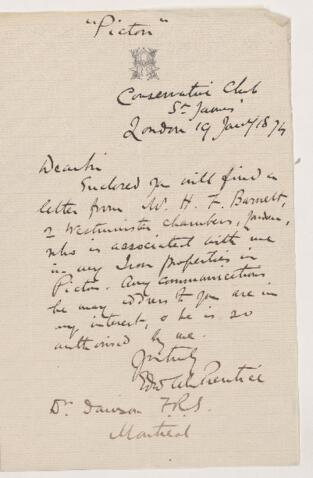 "Picton"
Conservative Club
St. James'
London 19 Jany 1874
Dear Sir
Enclosed you will find a
letter from W. H. F. Barnett,
2 Westminster Chambers, London,
who is associated with me
in my Iron properties in
Picton. Any communications
he may address to you are in
my interest, & he is so
authorised by me.
Yrs truly
Prentice
Dr Dawson F.R.S.
Montreal